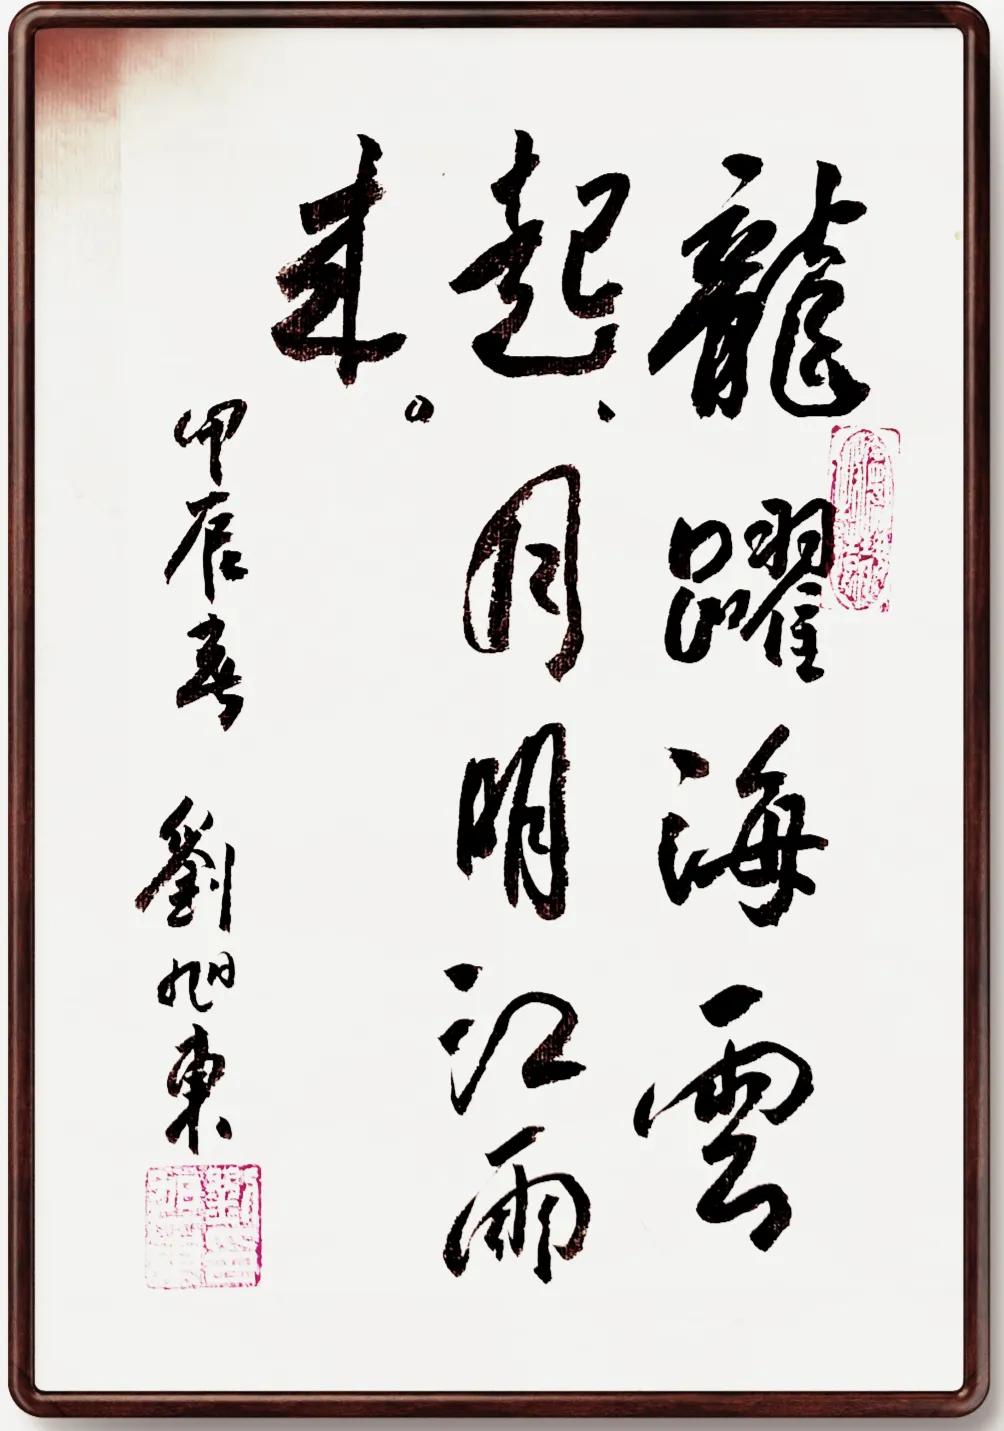 龍躍海雲
起、月明江雨
来。
甲辰春 劉旭東